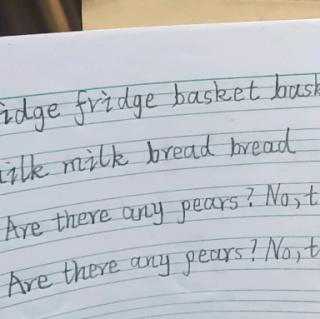 idge fridge basket bask
ilk milk bread bread
Are there any pears? No, t
Are there any pears? No, t